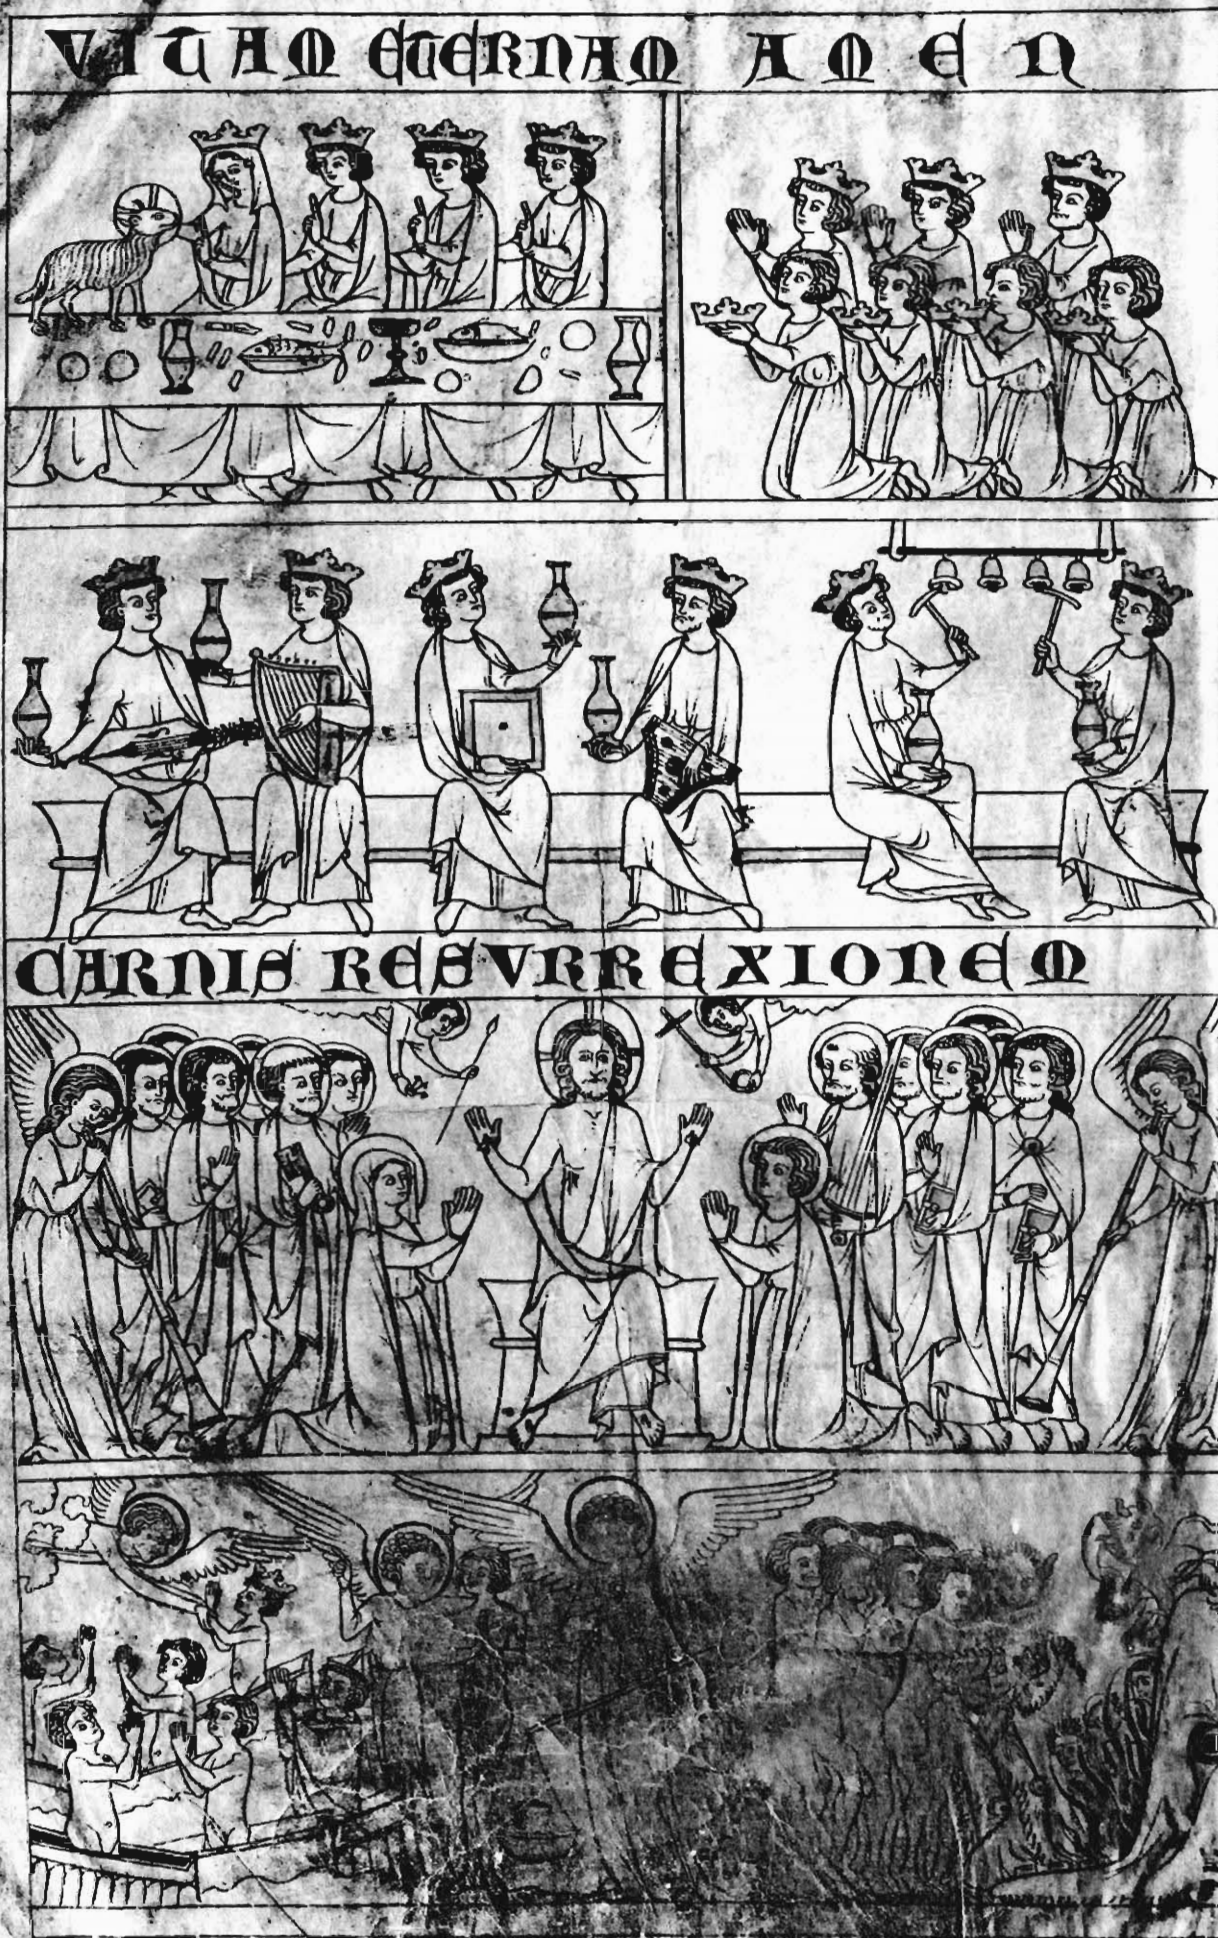 VITAM ETERNAM AMEN
CARNIS RESVRREXIONEM